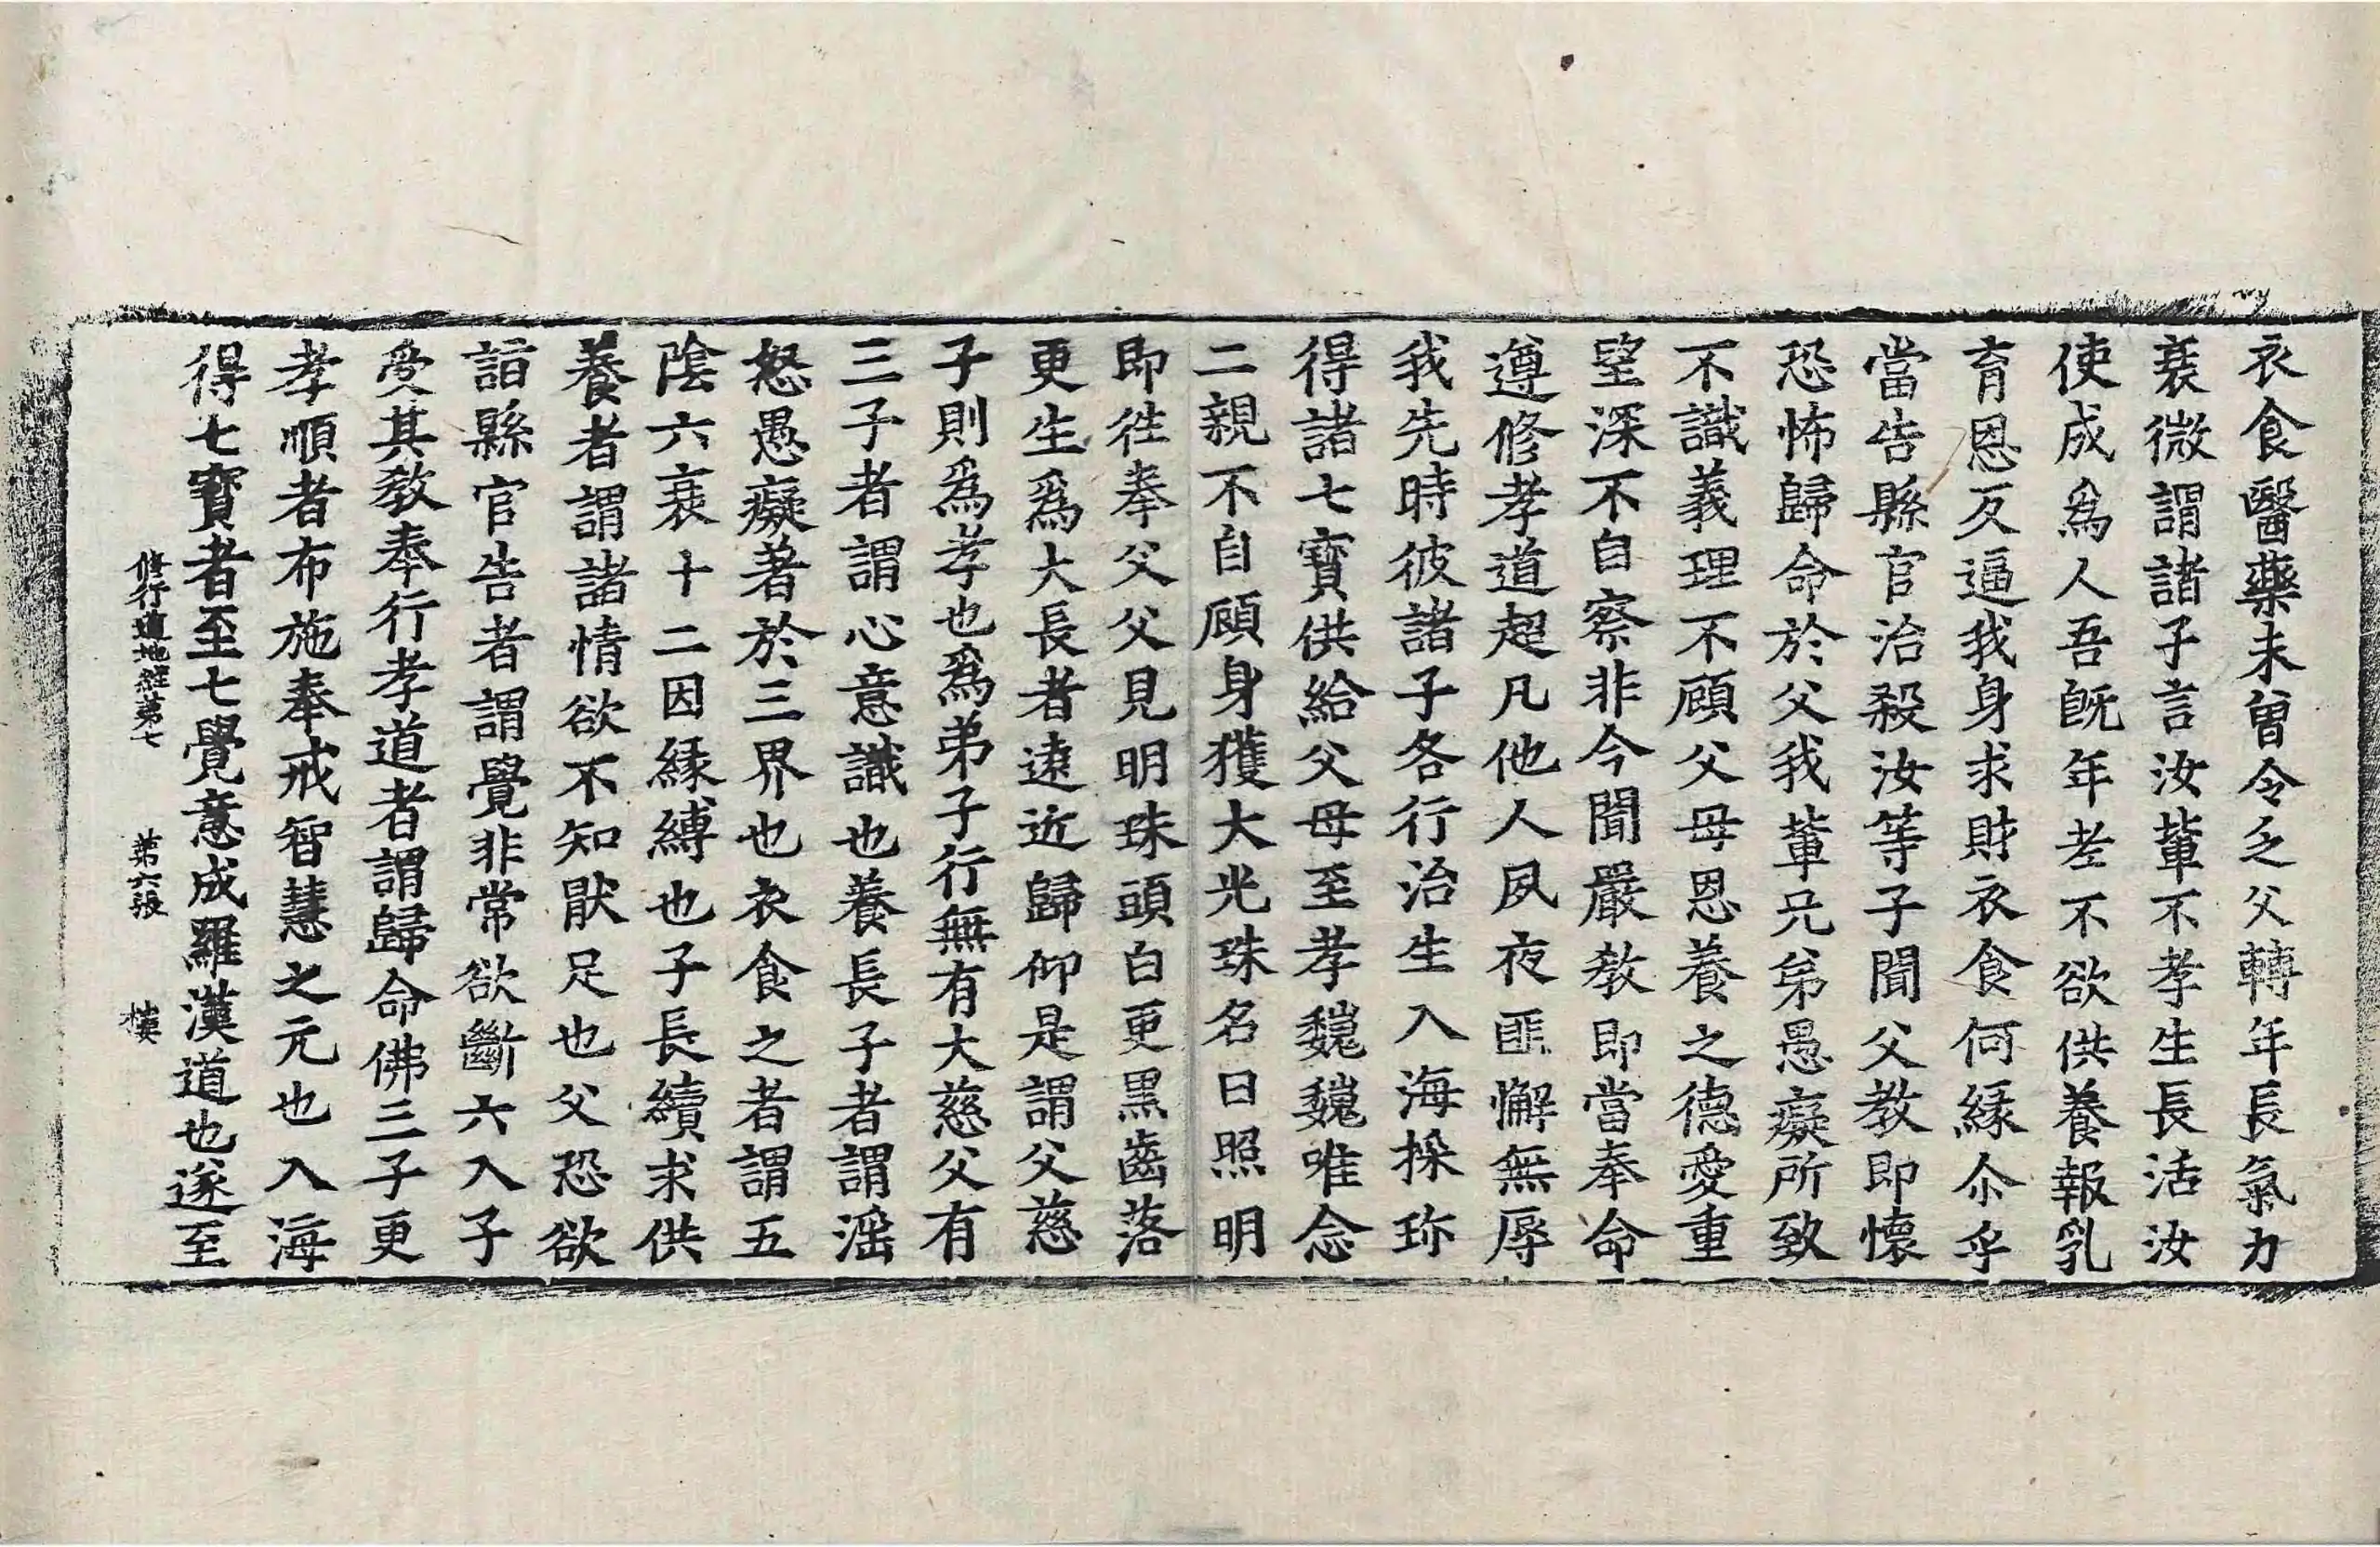 衣食醫藥未曽令乏父轉年長氣力
衰微謂諸子言汝輩不孝生長活汝
使成爲人吾旣年老不欲供養報乳
育恩反逼我身求財衣食何縁尒乎
當告縣官治殺汝等子聞父教即懷
恐怖歸命於父我輩兄弟愚癡所致
不識義理不顧父母恩養之德愛重
望深不自察非今聞嚴教即當奉命
遵修孝道超凡他人夙夜匪懈無辱
我先時彼諸子各行治生入海採珎
得諸七寶供給父母至孝巍巍唯念
二親不自顧身獲大光珠名曰照明
即往奉父父見明珠頭白更黒齒落
更生爲大長者遠近歸仰是謂父慈
子則爲孝也爲弟子行無有大慈父有
三子者謂心意識也養長子者謂婬
怒愚癡著於三界也衣食之者謂五
陰六衰十二因縁縛也子長續求供
養者謂諸情欲不知猒足也父恐欲
詣縣官告者謂覺非常欲斷六入子
受其教奉行孝道者謂歸命佛三子更
孝順者布施奉戒智慧之元也入海
得七寶者至七覺意成羅漢道也遂至
修行道地經第七 第六張 樓